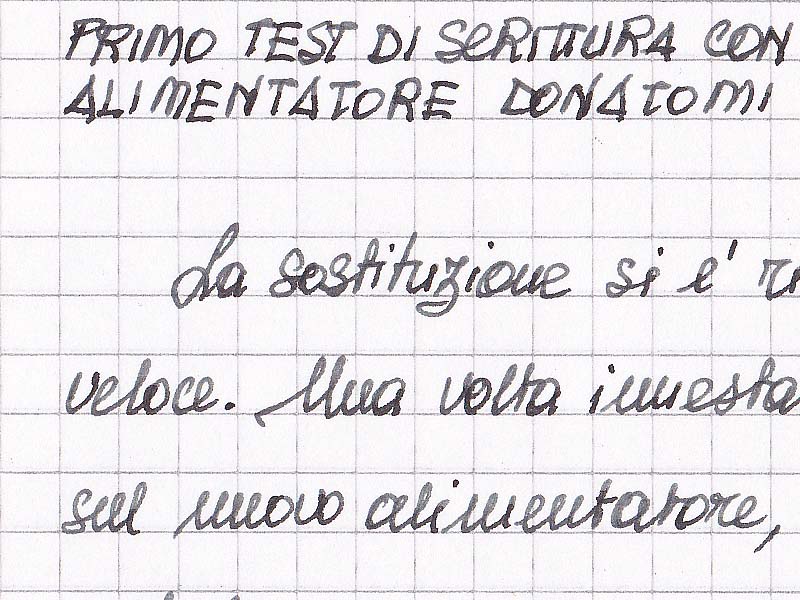 PRIMO TEST DI SCRITTURA CON
ALIMENTATORE DONATOMI
La sostituzione si e'
veloce. Una volta innesta
sul nuovo alimentatore,